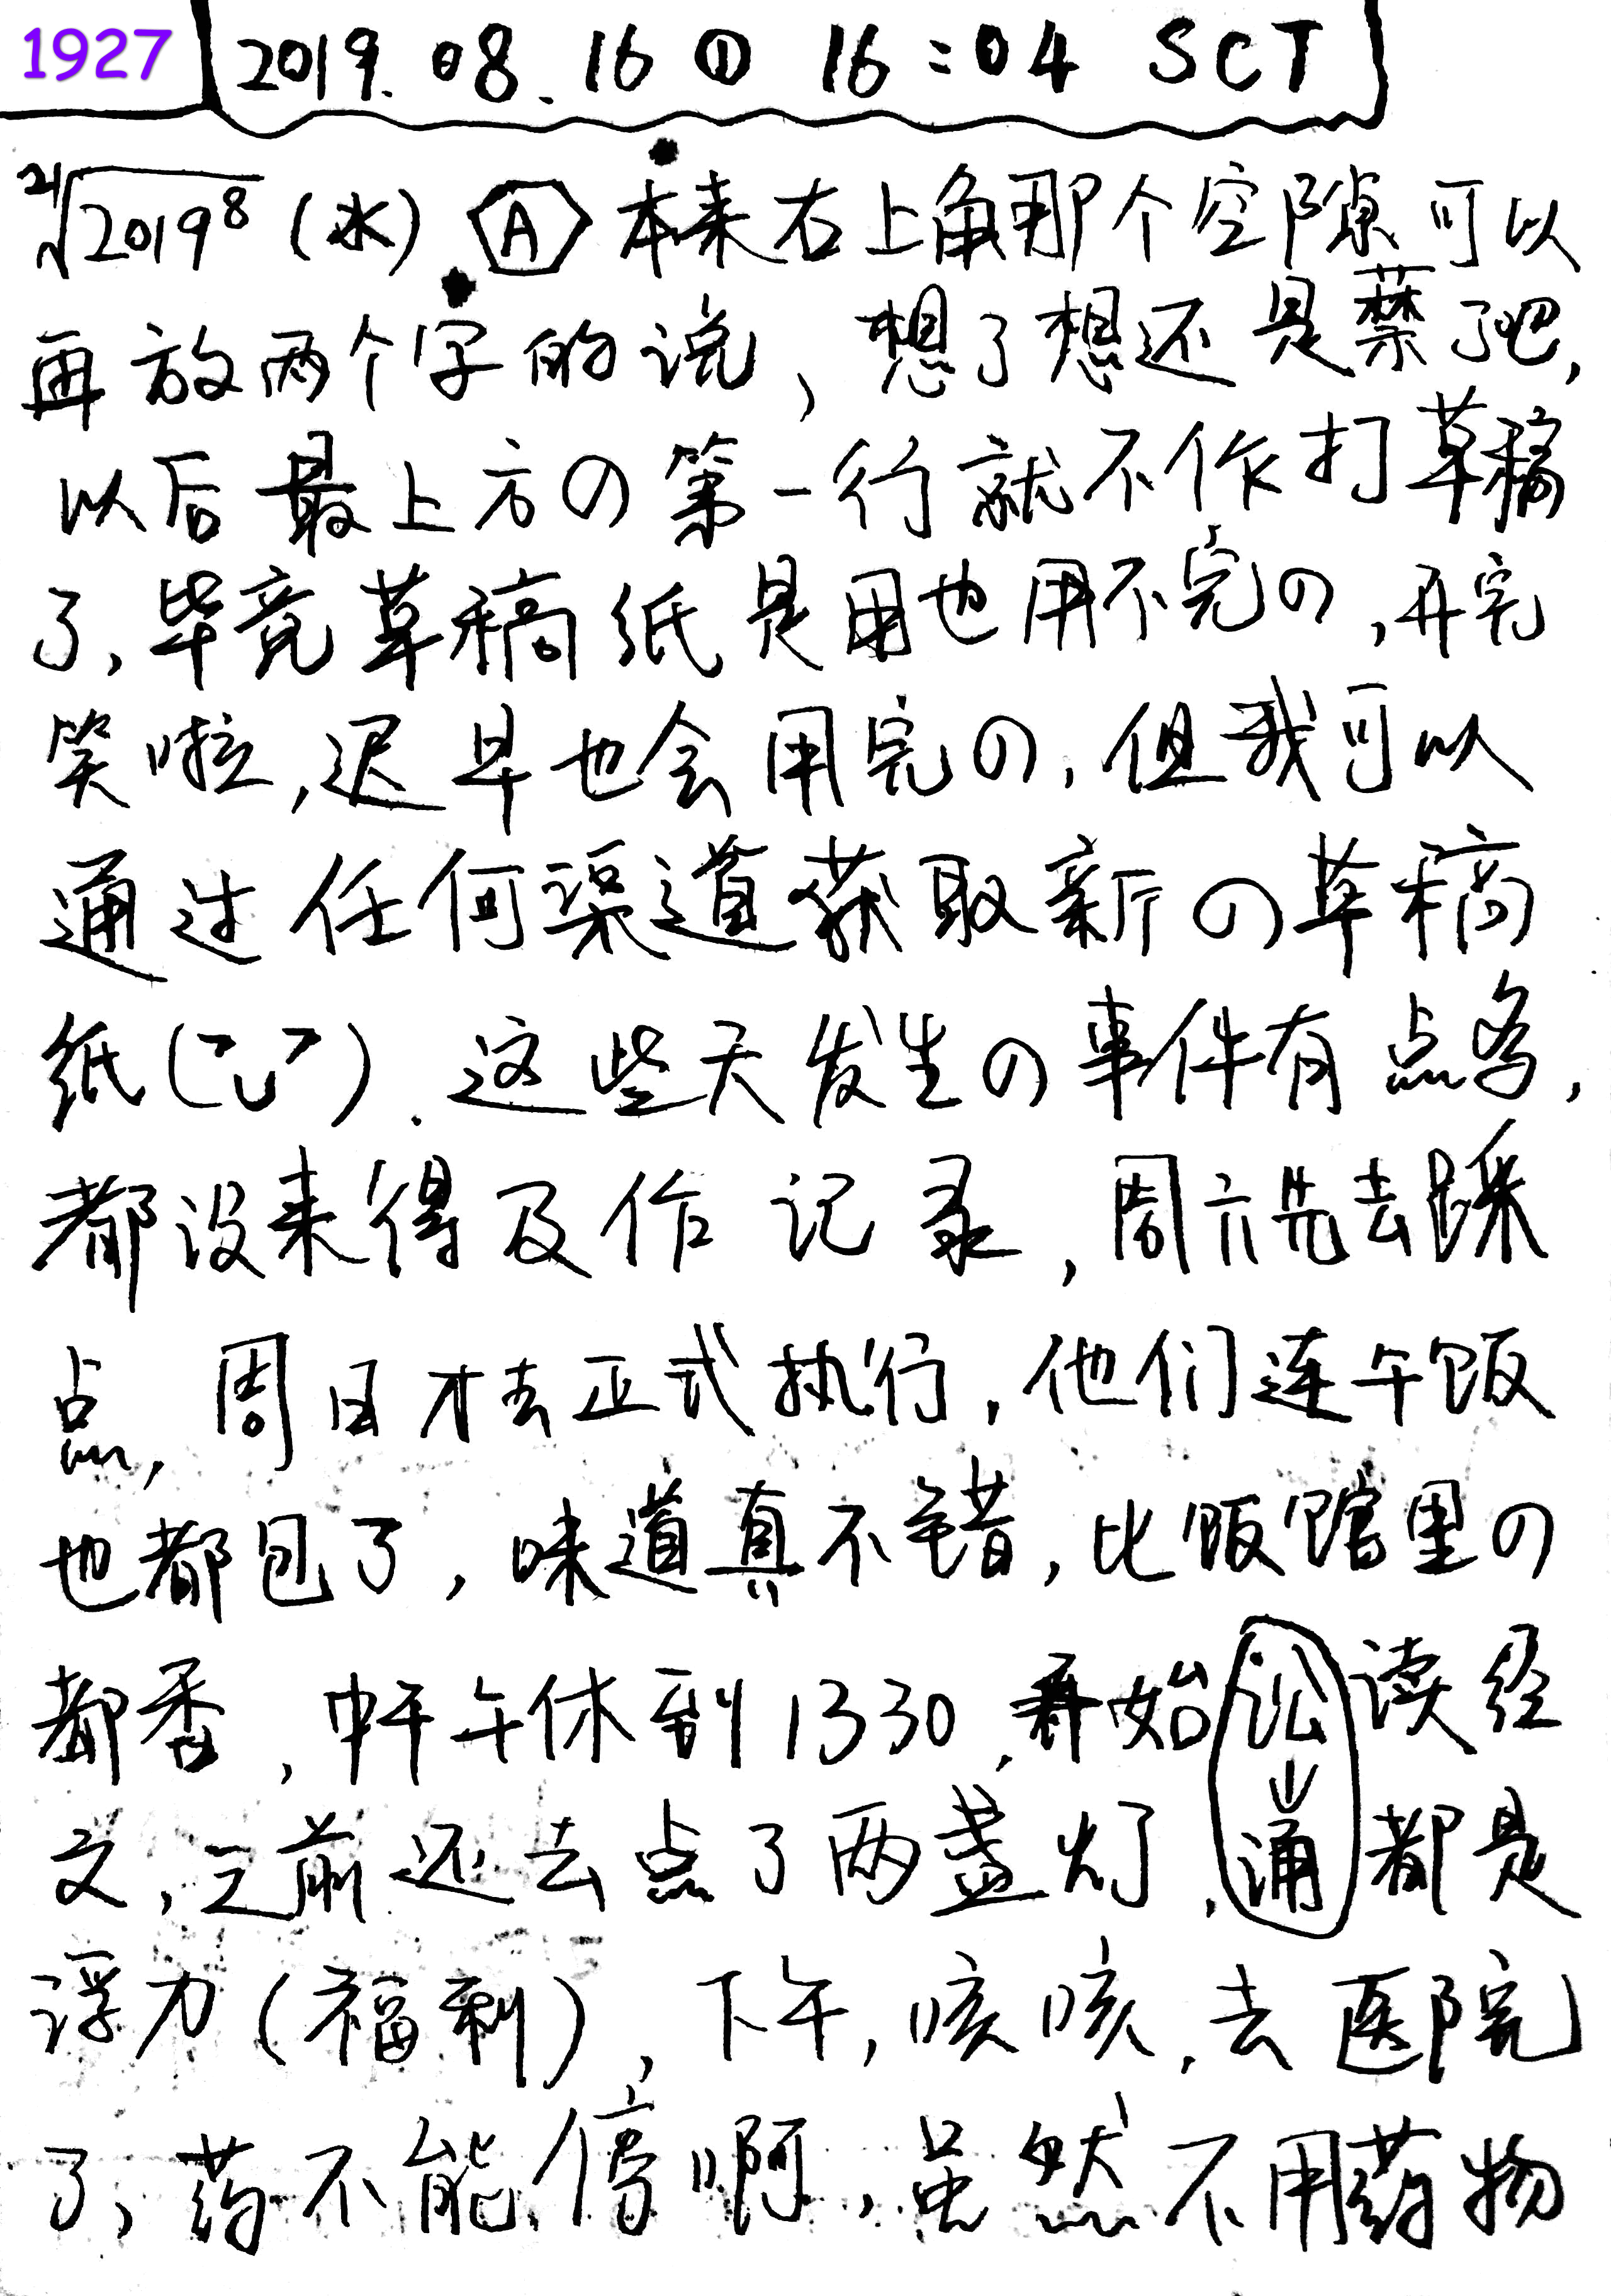 1927 2019.08.16 ① 16:04 SCT
²¹√2019⁸ (水) A 本来右上角那个空隙可以
再放两个字的说，想了想还是禁了吧，
以后最上方の第一行就不作打草稿
了，毕竟草稿纸是用也用不完の，开完
笑啦，迟早也会用完の，但我可以
通过任何渠道获取新の草稿
纸( )．这些天发生の事件有点多，
都没来得及作记录，周六先去踩
点，周日才去正式执行，他们连午饭
也都包了，味道真不错，比饭馆里の
都香，中午午休到1330，开始讼读经
文，之前还去点了两盏灯，诵都是
浮力(福利)，下午，咳咳，去医院
了，药不能停啊，虽然不用药物